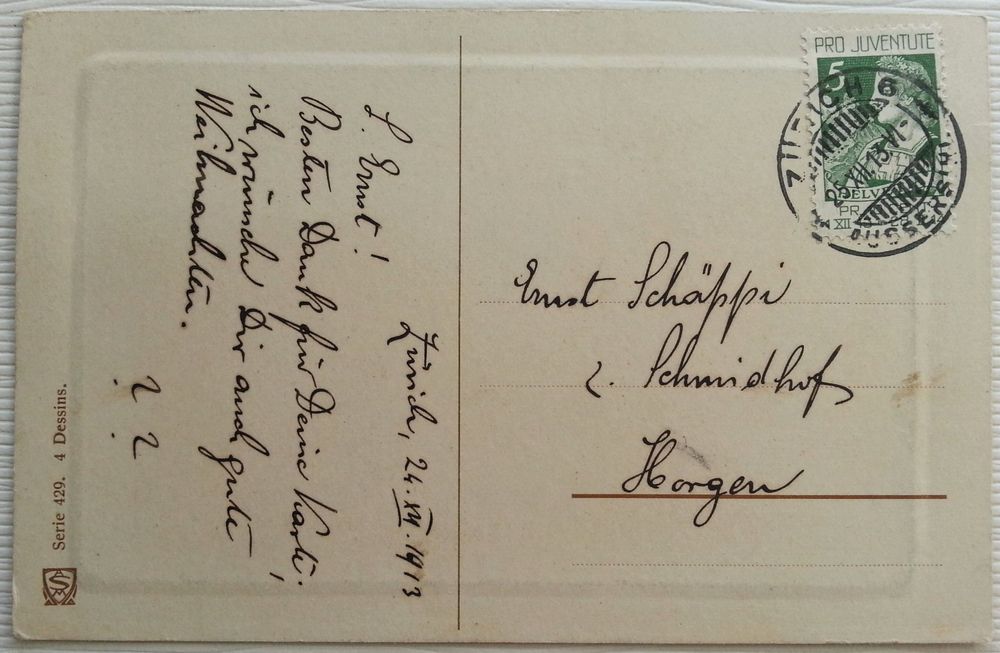 Zürich, 24. XII. 1913
L. Ernst!
Besten Dank für Deine Karte.
ich wünsche Dir auch gute
Weihnachten.
? ?
Serie 429. 4 Dessins.
PRO JUVENTUTE
5
ZÜRICH 6
25.XII.13.VI
AUSSERSIHL
XII
Ernst Schäppi
z. Schmidhof
Horgen